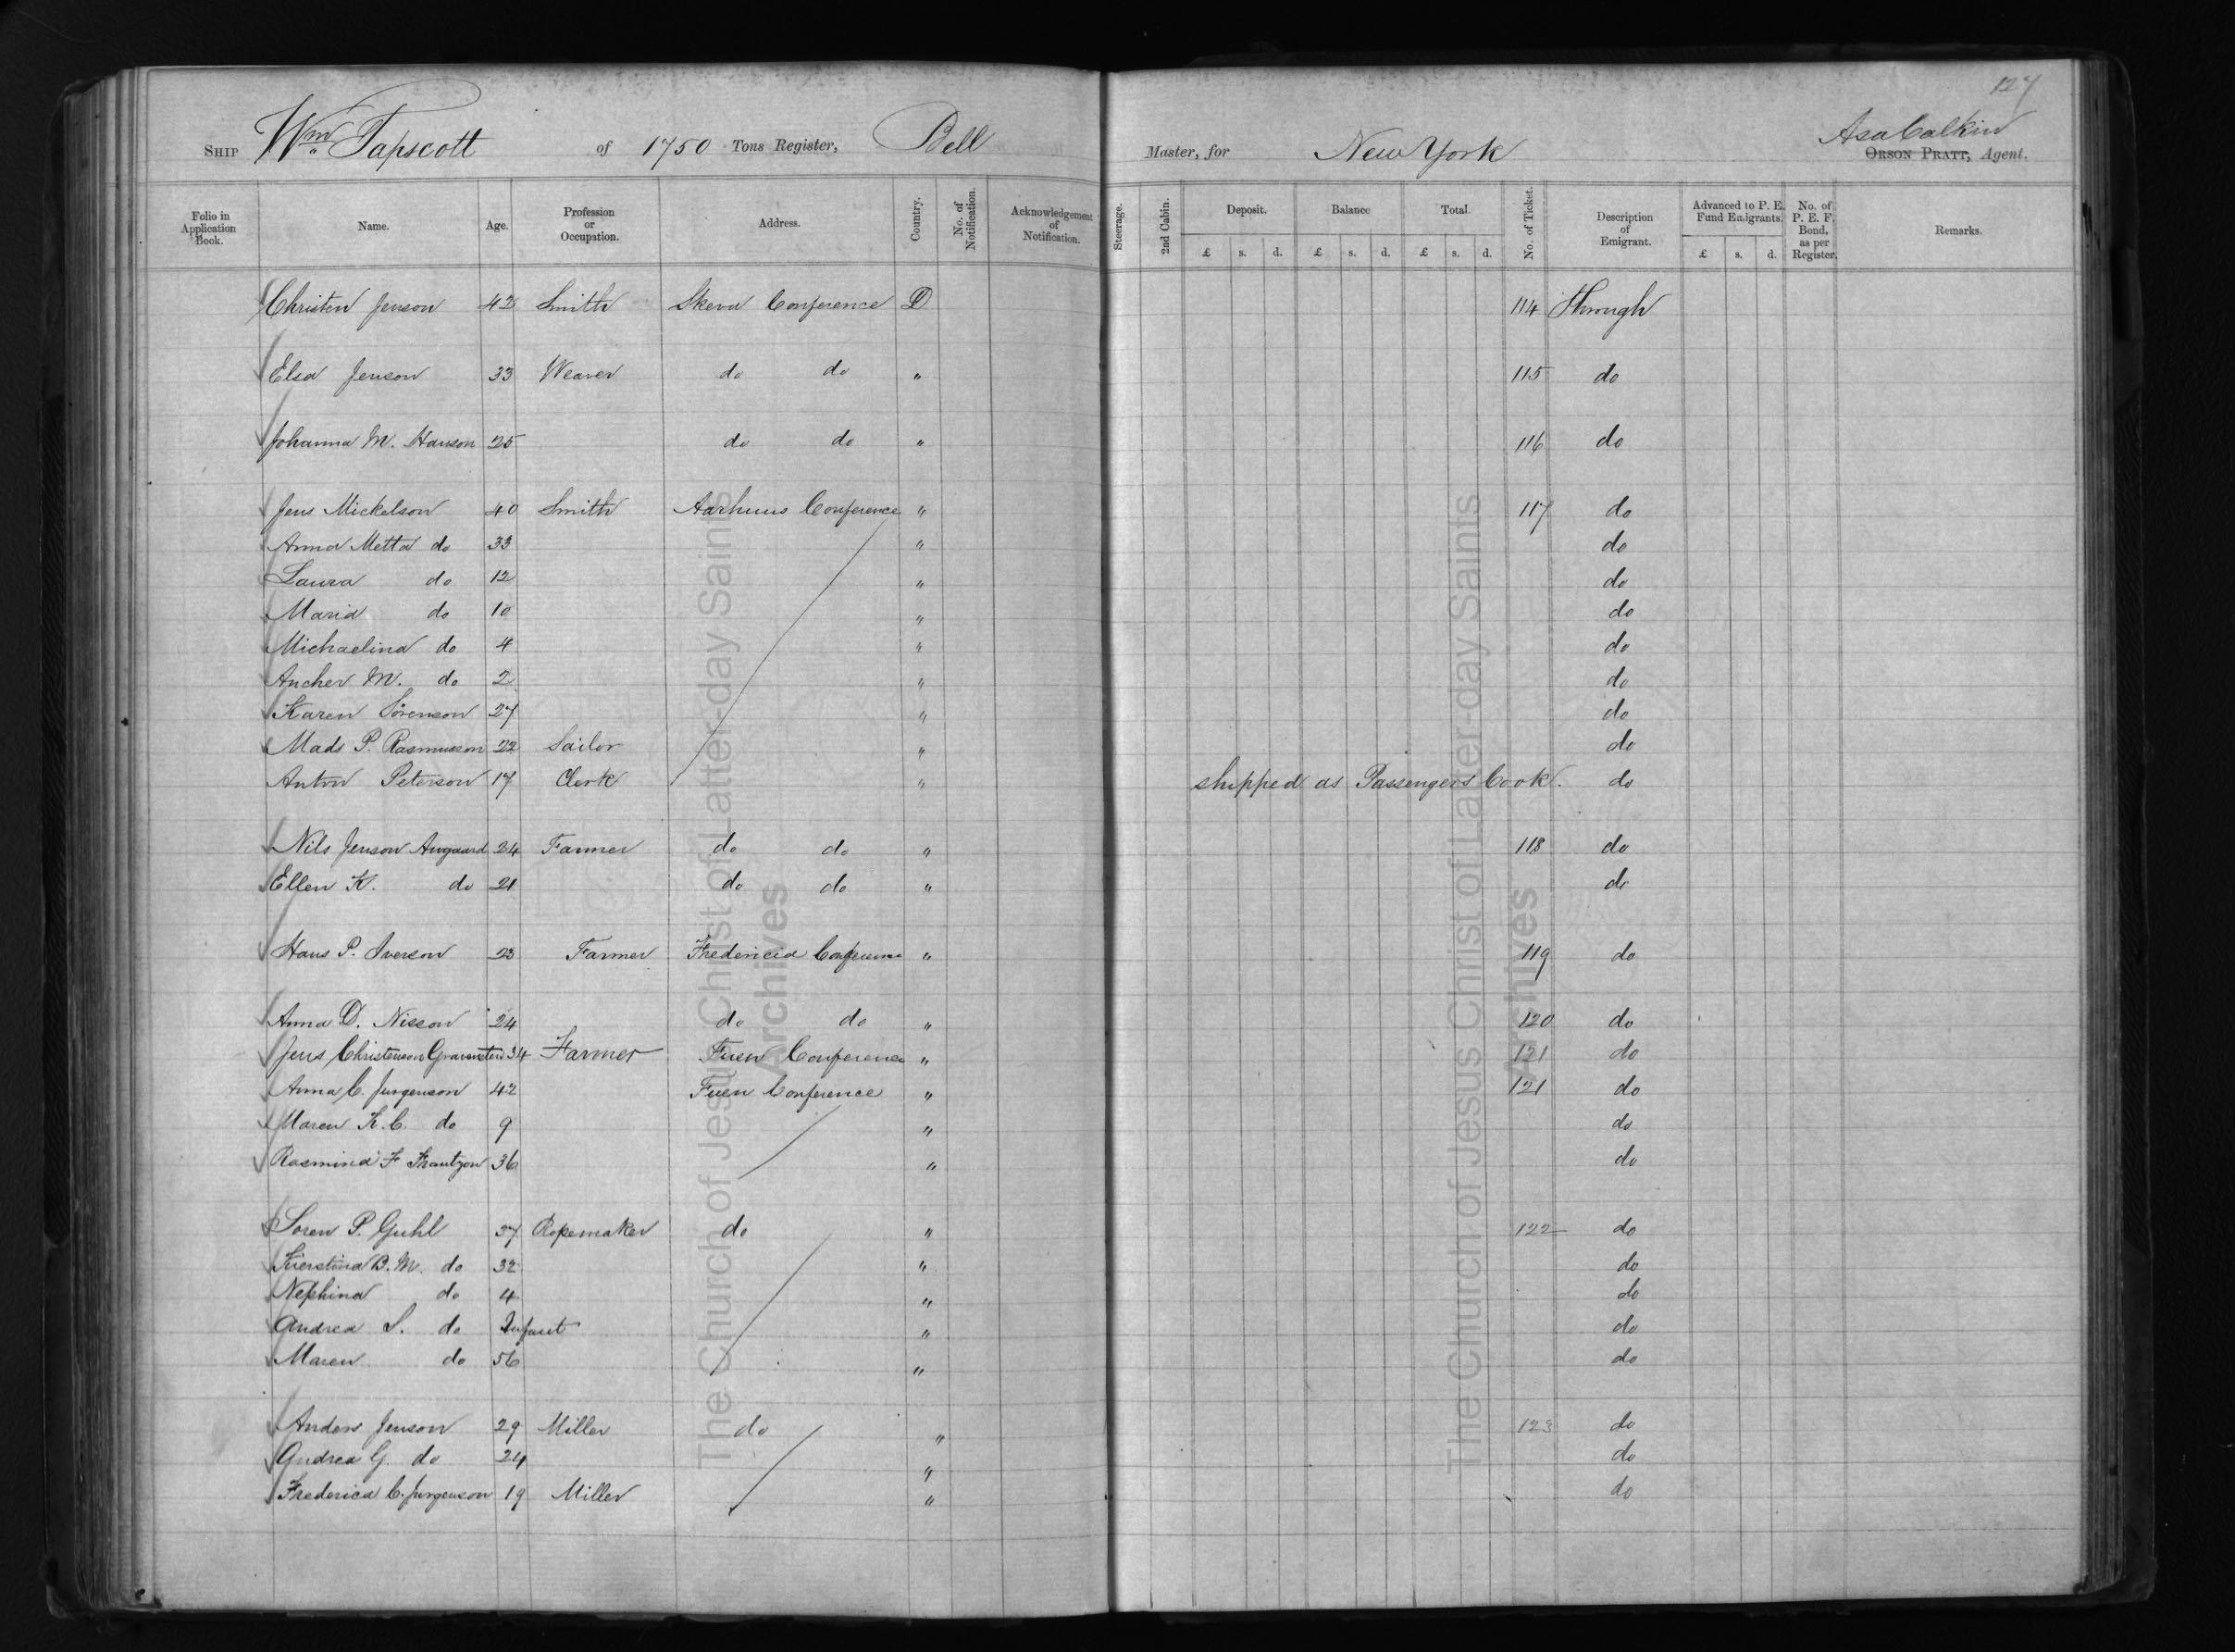 127
Ship Wm Tapscott of 1750 Tons Register, Bell Master, for New York Asa Calkin Orson Pratt, Agent.
Folio in Application Book. Name. Age. Profession or Occupation. Address. Country. No. of Notification. Acknowledgement of Notification. Steerage. 2nd Cabin. Deposit. Balance Total No. of Ticket. Description of Emigrant. Advanced to P. E. Fund Emigrants. No. of P. E. F. Bond, as per Register. Remarks.
£ s. d. £ s. d. £ s. d. £ s. d.
Christen Jenson 42 Smith Skeva Conference D 114 Through
Elsa Jenson 33 Weaver do do " 115 do
Johanna M. Hanson 25 do do " 116 do
Jens Mickelson 40 Smith Aarhuus Conference " 117 do
Anna Metta do 33 " do
Laura do 12 " do
Maria do 10 " do
Michaelina do 4 " do
Ancher M. do 2 " do
Karen Sörenson 27 " do
Mads P. Rasmusson 22 Sailor " do
Anton Peterson 17 Clerk " shipped as Passengers Cook. do
Nils Jenson Augaard 24 Farmer do do " 118 do
Ellen K. do 21 do do " do
Hans P. Iverson 23 Farmer Fredericia Conference " 119 do
Anna D. Nisson 24 do do " 120 do
Jens Christenson Gravensten 34 Farmer Fuen Conference " 121 do
Anna C. Jurgenson 42 Fuen Conference " 121 do
Maren K. C. do 9 " do
Rasmina F Frantzon 36 " do
Soren P. Guhl 37 Ropemaker do " 122 do
Kierstina B. M. do 32 " do
Nephina do 4 " do
Andrea S. do Infant " do
Maren do 56 " do
Anders Jenson 29 Miller do " 123 do
Andrea G. do 24 " do
Frederica C. Jurgenson 19 Miller " do
The Church of Jesus Christ of Latter-day Saints
Archives
The Church of Jesus Christ of Latter-day Saints
Archives